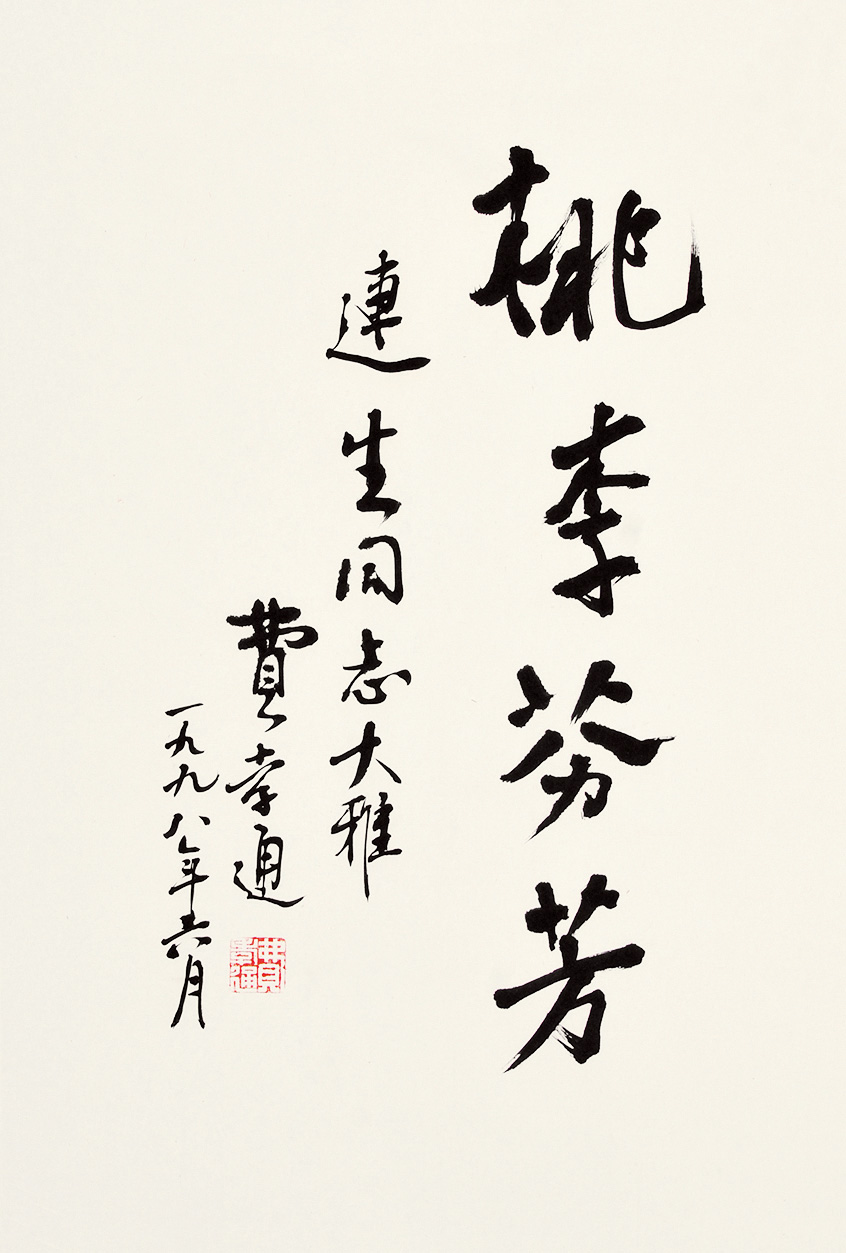 桃李芬芳
連生同志大雅
費孝通
一九九八年六月
費孝通